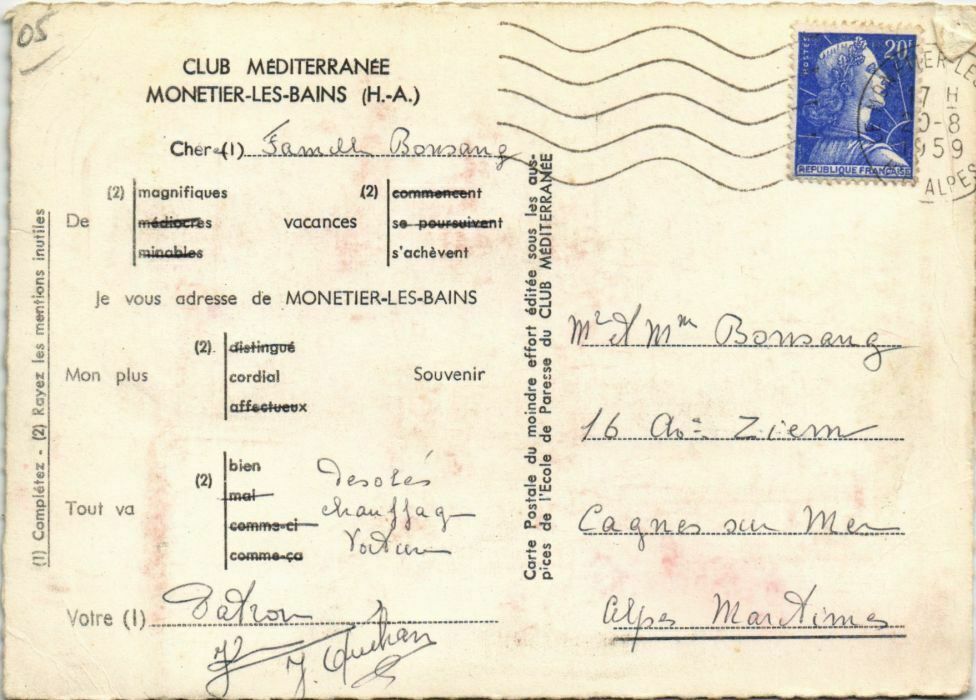 05
CLUB MÉDITERRANÉE
MONETIER-LES-BAINS (H.-A.)
Chère(1) Famille Bonsang
De (2) magnifiques vacances (2) commencent
médiocres se poursuivent
minables s'achèvent
Je vous adresse de MONETIER-LES-BAINS
Mon plus (2) distingué Souvenir
cordial
affectueux
Tout va (2) bien
mal
comme-ci
comme-ça
desolés
chauffage
Voiture
Votre (1) Patron
(1) Complétez - (2) Rayez les mentions inutiles
Carte Postale du moindre effort éditée sous les aus-
pices de l'Ecole de Paresse du CLUB MÉDITERRANÉE
POSTES
20F
REPUBLIQUE FRANÇAISE
7 H
0-8
1959
ALPES
Mr et Mm Bonsang
16 Av= Ziem
Cagnes sur Mer
Alpes Maritimes